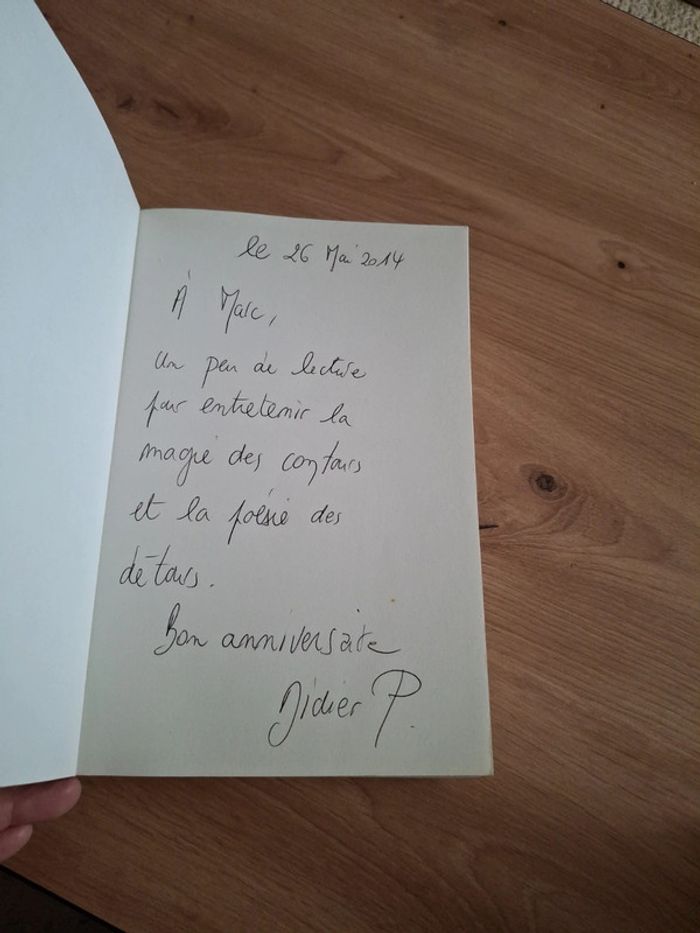 le 26 Mai 2014
À Marc,
Un peu de lecture
pour entretenir la
magie des contours
et la poésie des
détours.
Bon anniversaire
Didier P.